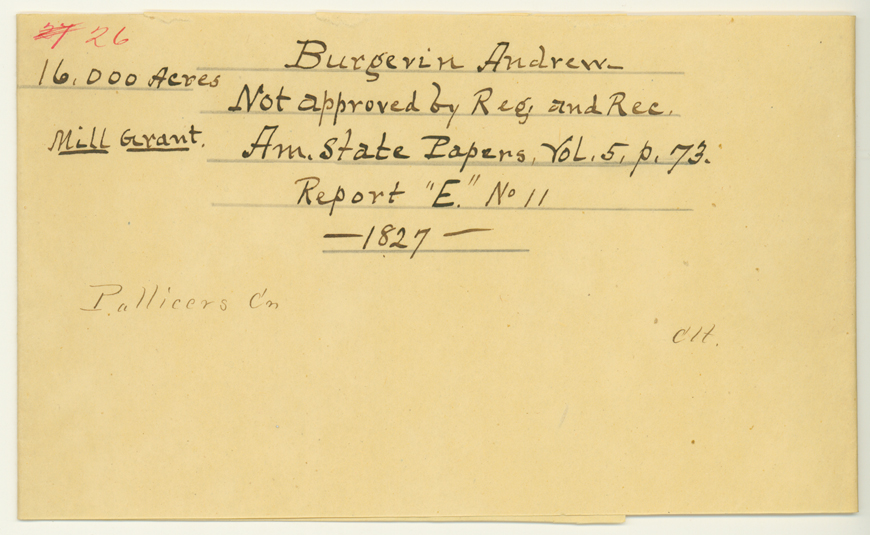 27 26
Burgevin Andrew
16.000 Acres
Not approved by Reg, and Rec.
Mill Grant.
Am. State Papers, Vol. 5, p. 73.
Report "E." No 11
— 1827 —
Pellicers Cr